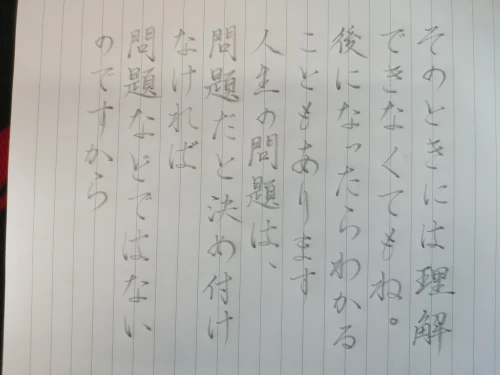 そのときには理解
できなくてもね。
後になったらわかる
こともあります
人生の問題は、
問題だと決め付け
なければ
問題などではない
のですから